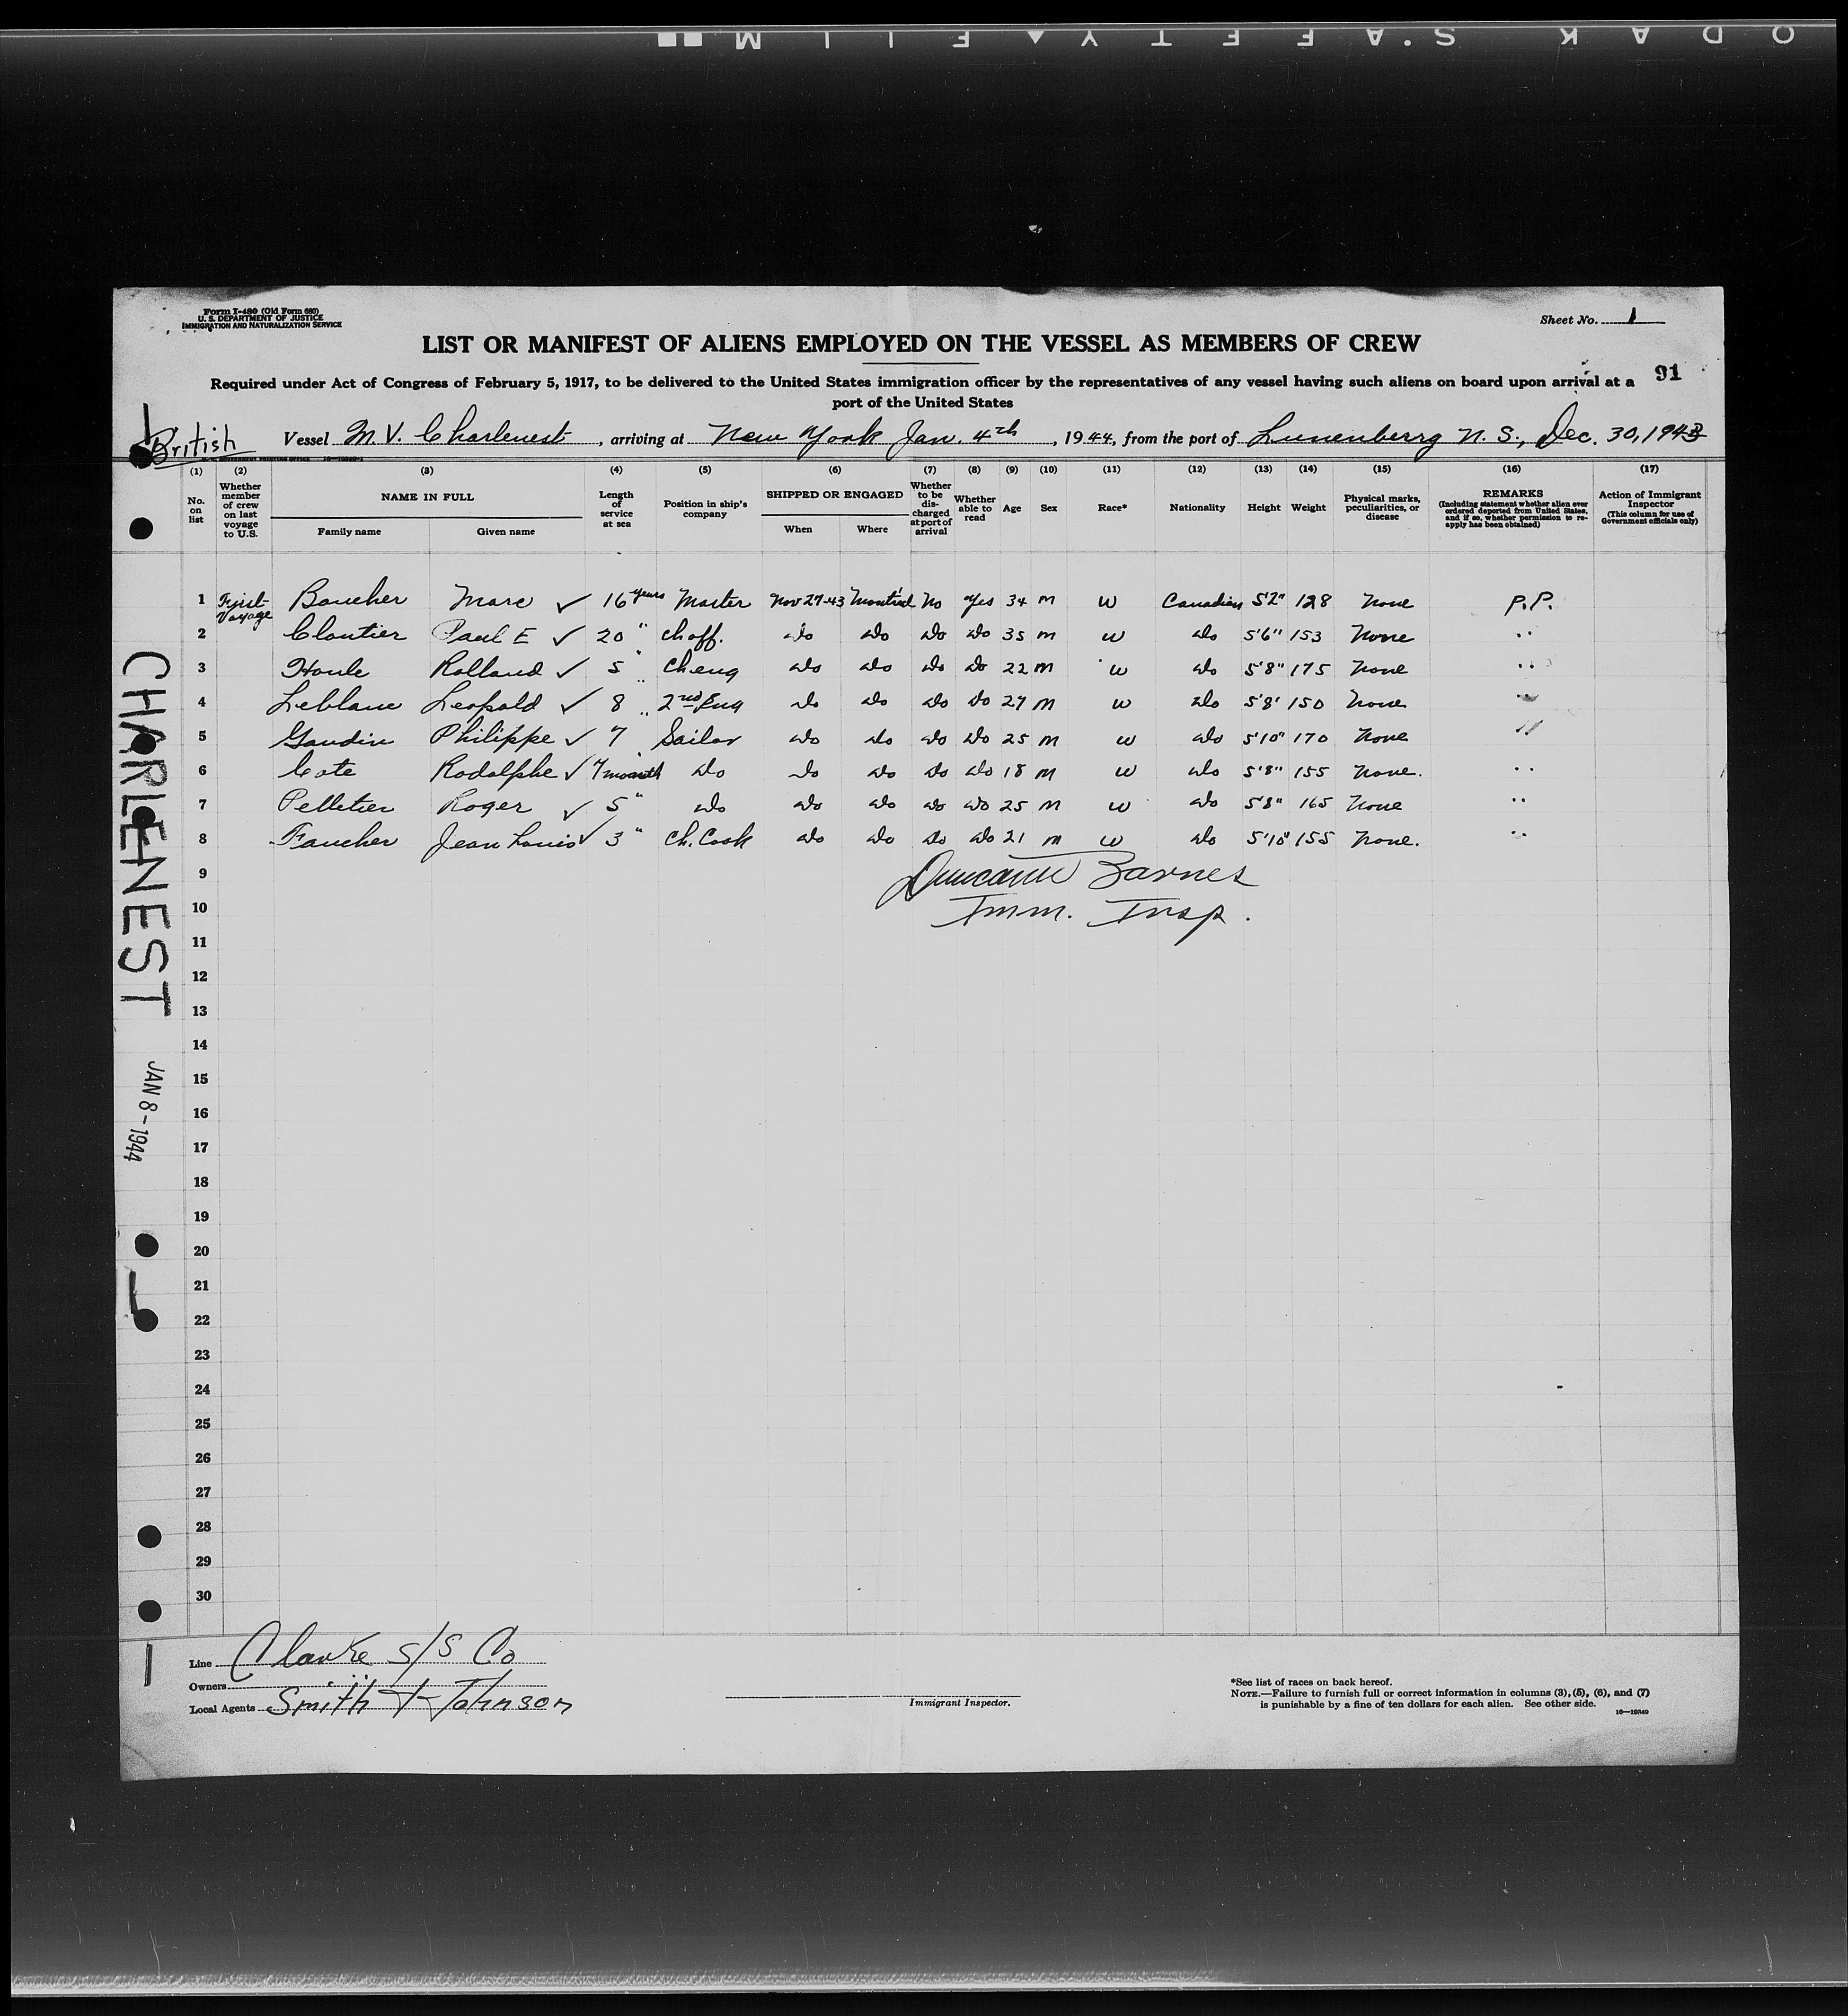 ODAK S·AFETY▲FILM■■
Form I-480 (Old Form 680)
U. S. DEPARTMENT OF JUSTICE
IMMIGRATION AND NATURALIZATION SERVICE
Sheet No. 1
LIST OR MANIFEST OF ALIENS EMPLOYED ON THE VESSEL AS MEMBERS OF CREW
91
Required under Act of Congress of February 5, 1917, to be delivered to the United States immigration officer by the representatives of any vessel having such aliens on board upon arrival at a
port of the United States
British Vessel M.V. Charlenest, arriving at New York Jan. 4th, 1944, from the port of Lunenberrg N. S., Dec. 30, 1943
(1) (2) (3) (4) (5) (6) (7) (8) (9) (10) (11) (12) (13) (14) (15) (16) (17)
No. on list
Whether member of crew on last voyage to U.S.
NAME IN FULL
Family name Given name
Length of service at sea
Position in ship's company
SHIPPED OR ENGAGED
When Where
Whether to be discharged at port of arrival
Whether able to read
Age Sex Race* Nationality Height Weight
Physical marks, peculiarities, or disease
REMARKS
(Including statement whether alien ever ordered deported from United States, and if so, whether permission to reapply has been obtained)
Action of Immigrant Inspector
(This column for use of Government officials only)
1 First Voyage Boucher Marc ✓ 16 years Master Nov 27-43 Montreal No Yes 34 M W Canadian 5'2" 128 None P.P.
2 Cloutier Paul E ✓ 20 " Ch off. do do do do 35 M W do 5'6" 153 None ..
3 Houle Rolland ✓ 5 " Ch eng do do do do 22 M W do 5'8" 175 None ..
4 Leblanc Leopold ✓ 8 " 2nd Eng do do do do 27 M W do 5'8' 150 None "
5 Gaudin Philippe ✓ 7 Sailor do do do do 25 M W do 5'10" 170 None "
6 Cote Rodolphe ✓ 7 month do do do do do 18 M W do 5'8" 155 None. ..
7 Pelletier Roger ✓ 5 " do do do do do 25 M W do 5'8" 165 None ..
8 Faucher Jean Louis ✓ 3 " Ch. Cook do do do do 21 M W do 5'10" 155 None. ..
9
Barnes
10
Imm. Insp.
11
12
13
14
15
16
17
18
19
20
21
22
23
24
25
26
27
28
29
30
CHARLENEST
JAN 8-1944
Line Clarke S/S Co
Owners "
Local Agents Smith & Johnson
Immigrant Inspector.
*See list of races on back hereof.
NOTE.—Failure to furnish full or correct information in columns (3), (5), (6), and (7)
is punishable by a fine of ten dollars for each alien. See other side.
16—19349